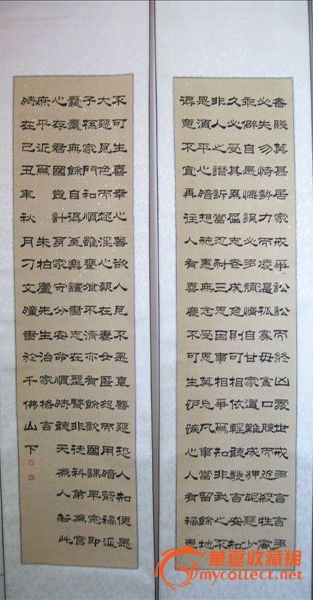 者賤莫甚居家戒爭訟訟則終凶處世戒多言言多
必失勿恃勢力而凌逼孤寡毋貪口腹而恣殺牲禽
乖僻自是悔誤必多頹惰自甘家道難成狎昵惡少
久必受其累屈志老成急則可相依輕聽發言安知
非人之譖訴當忍耐三思因事相爭焉知非我之不
是須平心暗想施惠無念受恩莫忘凡事當留餘地
得意不宜再往人有喜慶不可生妒忌心人有禍患
不可生喜幸心善欲人見不是真善惡恐人知便是
大惡見色而起淫心報在妻女匿怨而用暗箭禍延
子孫家門和順雖饔飧不濟亦有餘歡國課早完即
囊橐無餘自得至樂讀書志在聖賢非徒科第為官
心存君國豈計身家守分安命順時聽天為人若此
庶乎近焉 朱柏廬先生治家格言
時在己丑年秋月刁文 書於千佛山下
華夏收藏網
mycollect.net